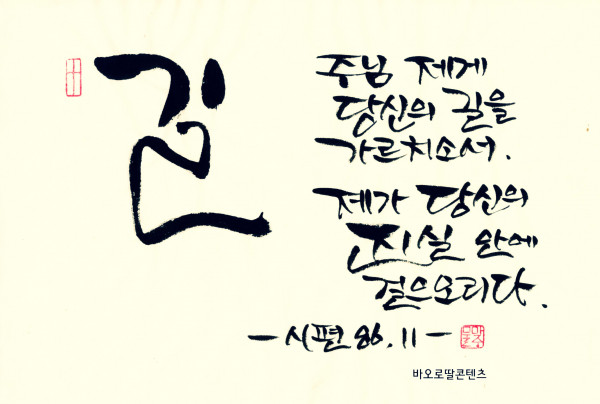 길
주님 제게
당신의 길을
가르치소서.
제가 당신의
진실 안에
걸으오리다.
- 시편 86.11 -
바오로딸콘텐츠